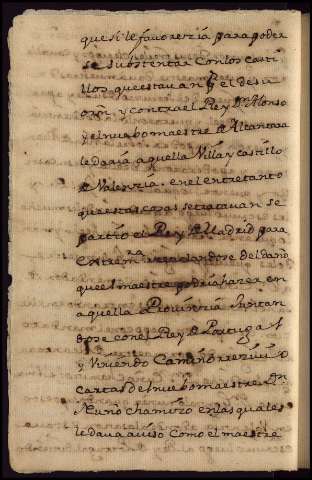 que si le favorezia para poder
se substentar con los casti
llos que estavan P el de su
y contra el Rey Dº Alonso
y el nuebo maestre de Alcantara
le dava aquella Villa y castillo
de Valenzia. en el entretanto
que estas cosas se tratavan se
partio el Rey de Madrid para
Extremra rezelandose del daño
que el maestre podria hazer en
aquella Provinzia Juntan
dose con el Rey de Portugal
y Viniendo Camino rezivio
cartas del nuebo maestre Dn
Nuno chamizo en las quales
le dava aviso Como el maestre